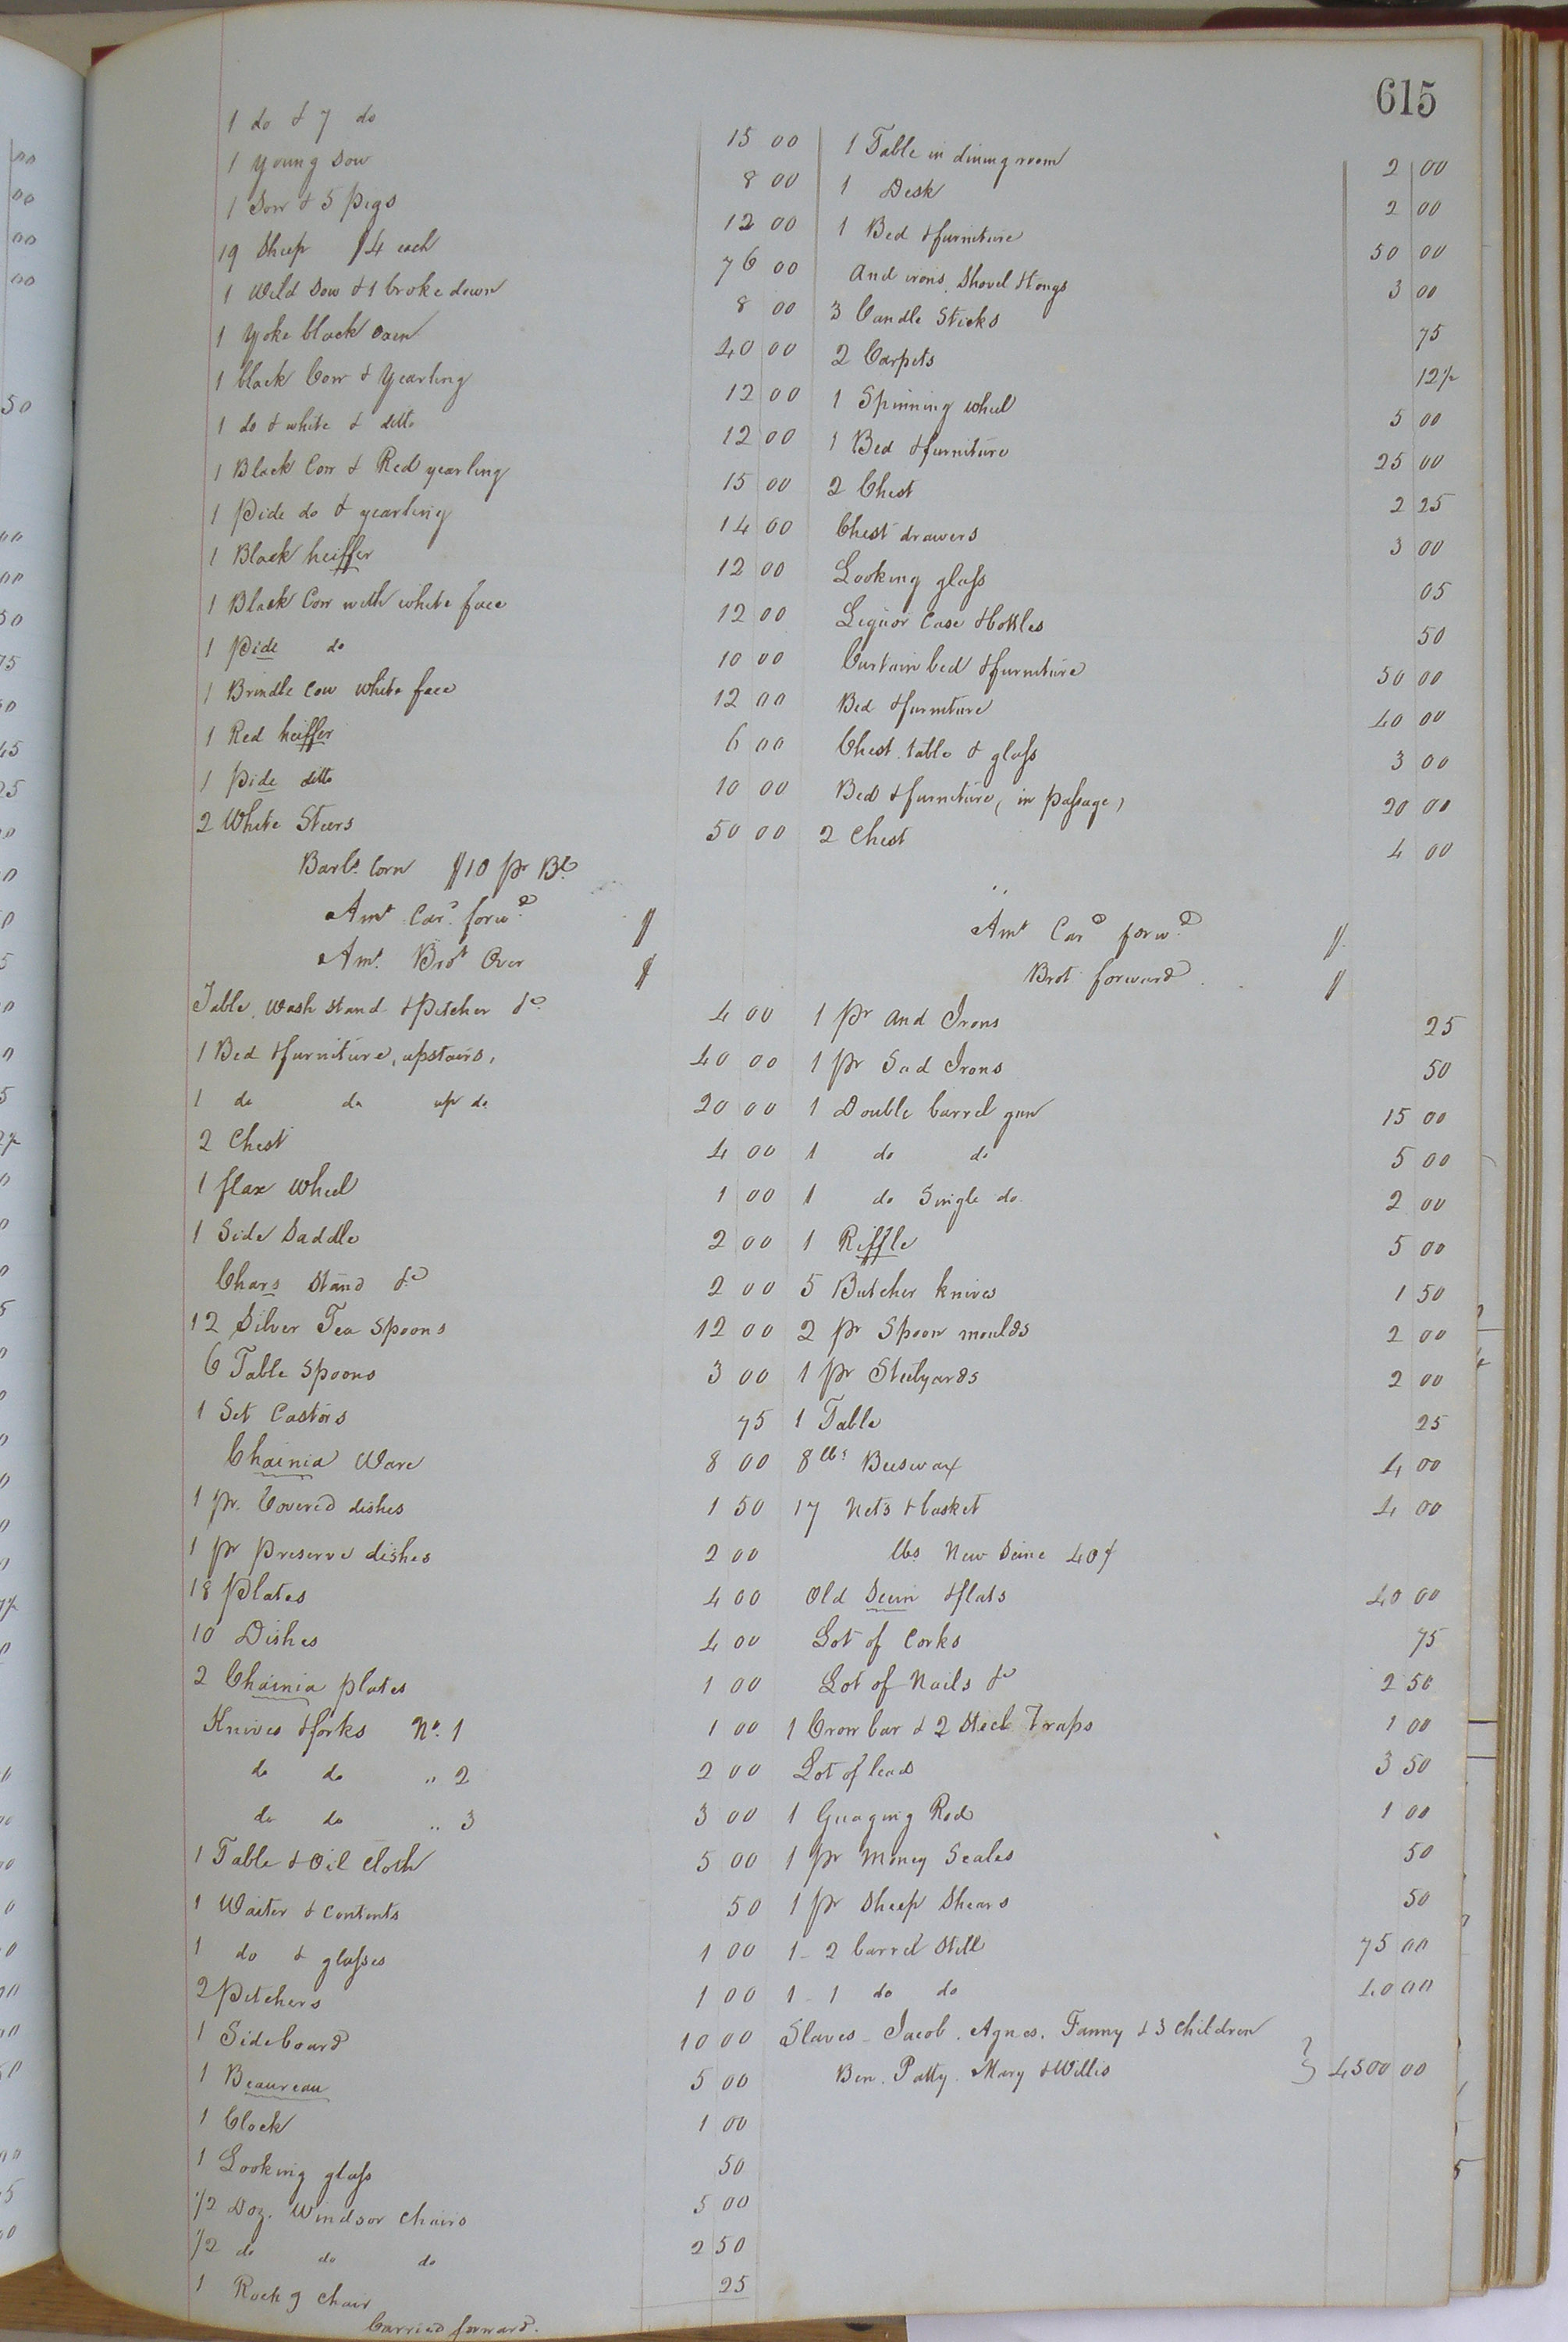 615
1 do & 7 do 15 00
1 Young Sow 8 00
1 Sow & 5 Pigs 12 00
19 Sheep $4 each 76 00
1 Wild Sow & 1 broke down 8 00
1 Yoke black Oxen 40 00
1 black Cow & Yearling 12 00
1 do & white & ditto 12 00
1 Black Cow & Red yearling 15 00
1 Pide do & yearling 14 00
1 Black heiffer 12 00
1 Black Cow with white face 12 00
1 Pide do 10 00
1 Brindle Cow white face 12 00
1 Red heiffer 6 00
1 Pide ditto 10 00
2 White Steers 50 00
Barls. Corn $10 pr Bl
Amt Card. forwd $
1 Table in dining room 2 00
1 Desk 2 00
1 Bed & furniture 50 00
And irons, Shovel & tongs 3 00
3 Candle Sticks 75
2 Carpets 12½
1 Spinning wheel 5 00
1 Bed & furniture 25 00
2 Chest 2 25
Chest drawers 3 00
Looking glass 05
Liquor Case & bottles 50
Curtain bed & furniture 50 00
Bed & furniture 40 00
Chest table & glass 3 00
Bed & furniture (in passage) 20 00
2 Chest 4 00
Amt Card forwd $
Amt. Brot Over $
Table, Wash Stand & Pitcher &c 4 00
1 Bed & furniture, upstairs, 40 00
1 do do up do 20 00
2 Chest 4 00
1 flax Wheel 1 00
1 Side Saddle 2 00
Chars Stand &c 2 00
12 Silver Tea Spoons 12 00
6 Table Spoons 3 00
1 Set Castors 75
Chainia Ware 8 00
1 pr. Covered dishes 1 50
1 pr Preserve dishes 2 00
18 Plates 4 00
10 Dishes 4 00
2 Chainia plates 1 00
Knives & forks No. 1 1 00
do do " 2 2 00
do do " 3 3 00
1 Table & Oil Cloth 5 00
1 Waiter & Contents 50
1 do & glasses 1 00
2 Pitchers 1 00
1 Sideboard 10 00
1 Beaureau 5 00
1 Clock 1 00
1 Looking glass 50
1/2 Doz. Windsor Chairs 5 00
1/2 do do do 2 50
1 Rockg Chair 25
Carried forward.
Brot forward $
1 pr And Irons 25
1 pr Sad Irons 50
1 Double barrel gun 15 00
1 do do 5 00
1 do Single do 2 00
1 Riffle 5 00
5 Butcher knives 1 50
2 pr Spoon moulds 2 00
1 pr Steelyards 2 00
1 Table 25
8 lbs Beeswax 4 00
17 Nets & basket 4 00
lbs New Seine 40¢
Old Seein & flats 40 00
Lot of Corks 75
Lot of Nails &c 2 50
1 Crow bar & 2 Steel Traps 1 00
Lot of lead 3 50
1 Guaging Rod 1 00
1 pr Money Scales 50
1 pr Sheep Shears 50
1 - 2 barrel Still 75 00
1 - 1 do do 40 00
Slaves - Jacob. Agnes. Fanny & 3 Children
Ben. Patty. Mary & Willis } 4500 00